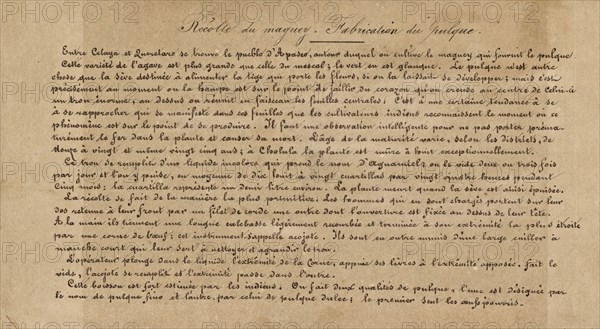 Récolte du maguey. Fabrication du pulque.
Entre Celaya et Queretaro se trouve le pueblo d'Apaseo, autour duquel on cultive le maguey qui fournit le pulque
Cette variété de l'agave est plus grande que celle du mescal; le vert en est glauque. Le pulque n'est autre
chose que la sève destinée à alimenter la tige qui porte les fleurs, si on la laissait se développer; mais c'est
précisément au moment où la hampe est sur le point de jaillir du corazon qu'on creuse au centre de celui-ci
un trou énorme, au dessus on réunit en faisceau les feuilles centrales; C'est à une certaine tendance à se
à se rapprocher qui se manifeste dans ces feuilles que les cultivateurs indiens reconnaissent le moment où ce
phénomène est sur le point de se produire. Il faut une observation intelligente pour ne pas porter préma-
turément le fer dans la plante et causer sa mort. L'âge de la maturité varie, selon les districts, de
douze à vingt et même vingt cinq ans; à Cholula la plante est mûre à huit exceptionnellement.
Ce trou se remplit d'un liquide incolore qui prend le nom d'Aguamiel; on le vide deux ou trois fois
par jour et l'on y puise, en moyenne de dix huit à vingt cuartillas par vingt quatre heures pendant
cinq mois; la cuartilla représente un demi litre environ. La plante meurt quand la sève est ainsi épuisée.
La récolte se fait de la manière la plus primitive. Les hommes qui en sont chargés portent sur leur
dos retenue à leur front par un filet de corde une outre dont l'ouverture est fixée au dessus de leur tête.
A la main ils tiennent une longue calebasse légèrement recourbée et terminée à son extrémité la plus étroite
par une corne de bœuf; cet instrument s'appelle acojote. Ils sont en outre munis d'une large cuiller à
manche court qui leur sert à nettoyer et agrandir le trou.
L'opérateur plonge dans le liquide l'extrémité de la corne, appuie ses lèvres à l'extrémité opposée, fait le
vide, l'acojote se remplit et l'extrémité passe dans l'outre.
Cette boisson est fort estimée par les indiens. On fait deux qualités de pulque, l'une est désignée par
le nom de pulque fino et l'autre, par celui de pulque dulce; le premier sent les œufs pourris.